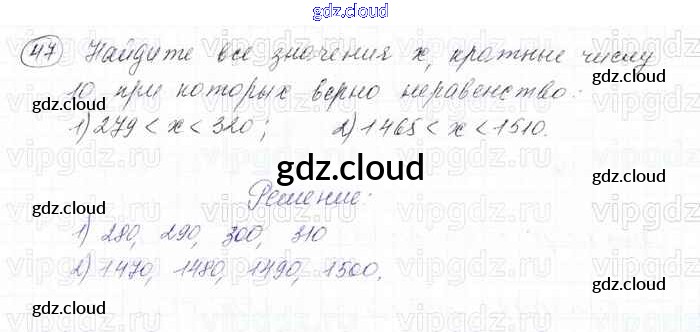 gdz.cloud
47 Найдите все значения x, кратные числу
10 при которых верно неравенство:
gdz.cloud gdz.cloud
1) 279 < x < 320; 2) 1465 < x < 1510.
gdz.cloud
Решение:
gdz.cloud gdz.cloud
1) 280, 290, 300, 310
2) 1470, 1480, 1490, 1500.
gdz.cloud gdz.cloud